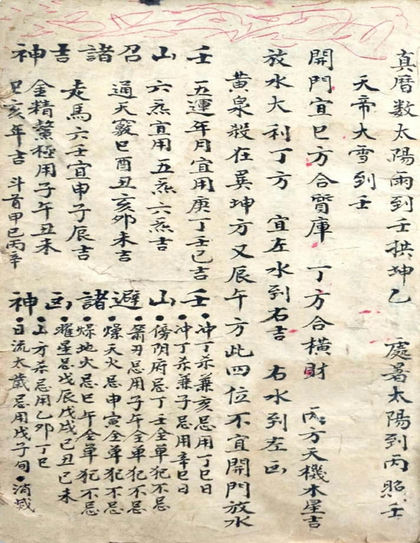 真曆数太陽雨到壬拱坤乙 處暑太陽到丙照壬
天帝大雪到壬
開門宜巳方合寶庫 丁方合橫財 丙方天機木星吉
放水大利丁方 宜左水到右吉 右水到左凶
黄泉殺在巽坤方又辰午方此四位不宜開門放水
壬山召諸吉神
五運年月宜用庚丁壬巳吉
六炁宜用五炁六炁吉
通天竅巳酉丑亥卯未吉
走馬六壬宜申子辰吉
金精鰲極用子午丑未
巳亥年吉 斗首甲巳丙辛
壬山避諸凶神
冲丁杀兼亥忌用丁巳日
冲丁杀兼子忌用辛巳日
傍陰府忌丁壬全單犯不忌
箭刃忌用子午全單犯不忌
燥天火忌申寅全單犯不忌
燥地火忌巳午全單犯不忌
曜星忌戊辰戊戌巳丑巳未
山方杀忌用乙卯丁巳
日流太歲忌用戊子旬 消滅